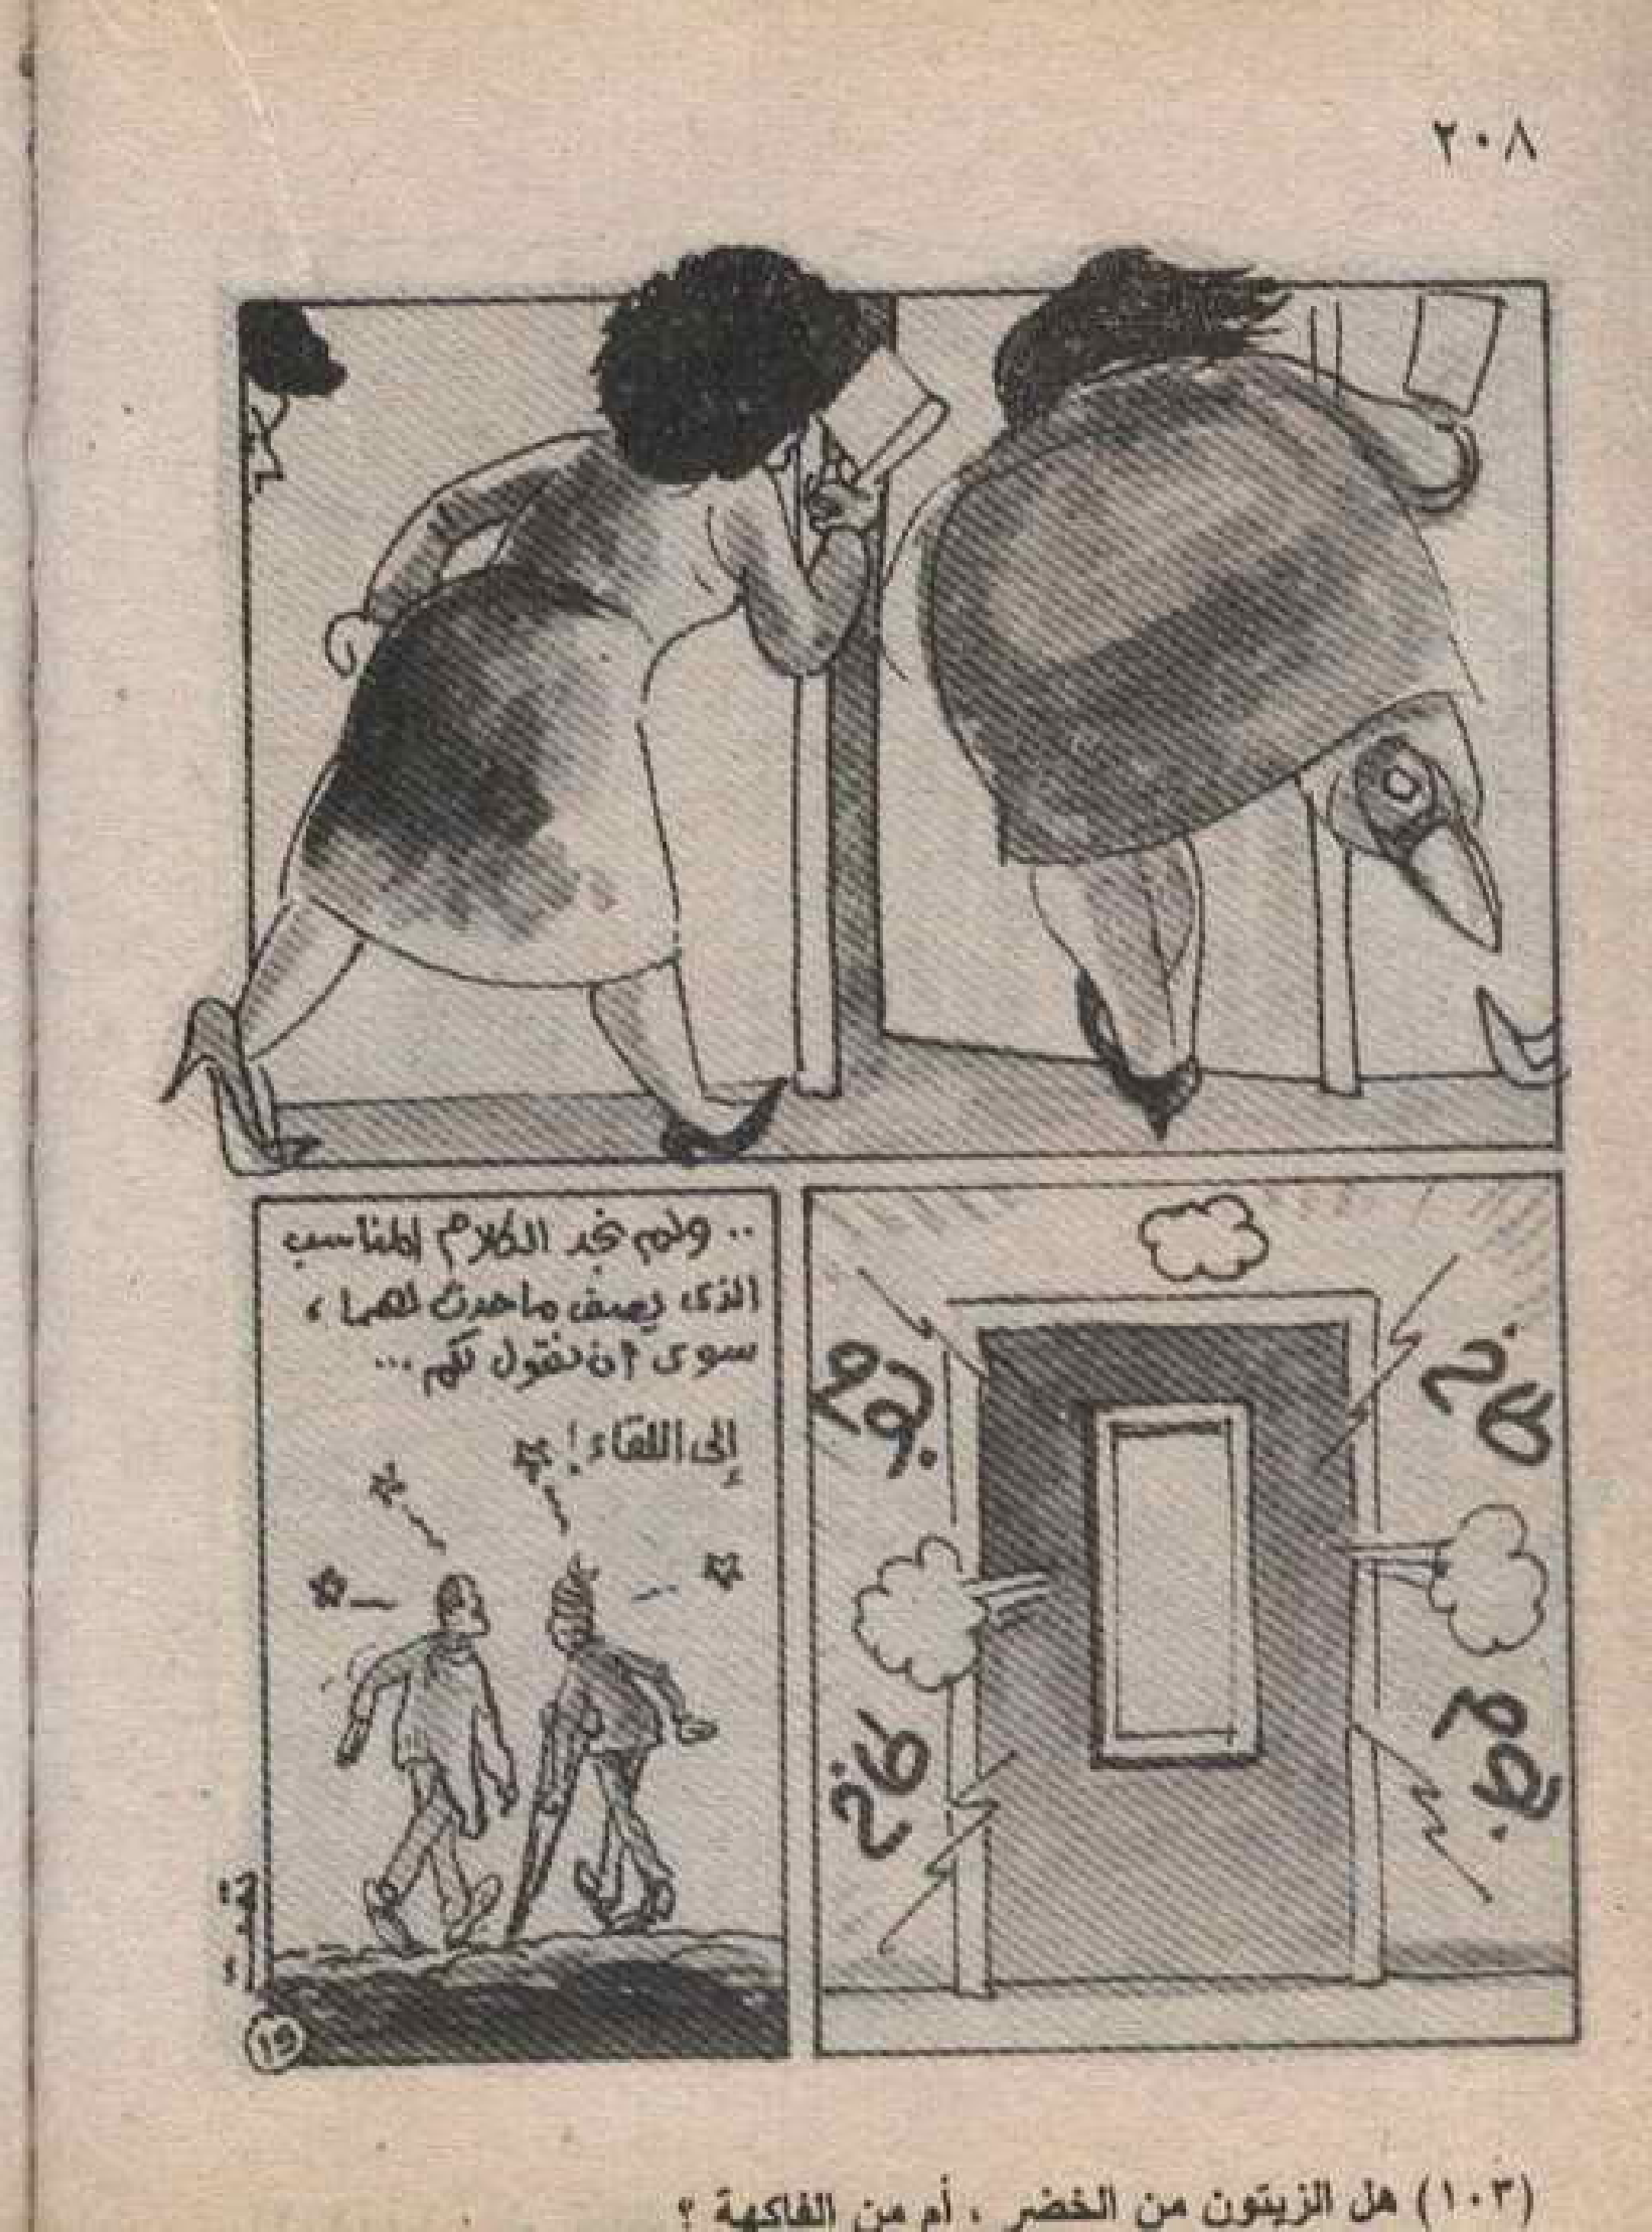 ٢٠٨
.. ولم نجد الكلام المناسب
الذى يصف ما حدث لهما ،
سوى أن نقول لكم ...
إلى اللقاء !
١٥
(١٠٣) هل الزيتون من الخضر ، أم من الفاكهة ؟